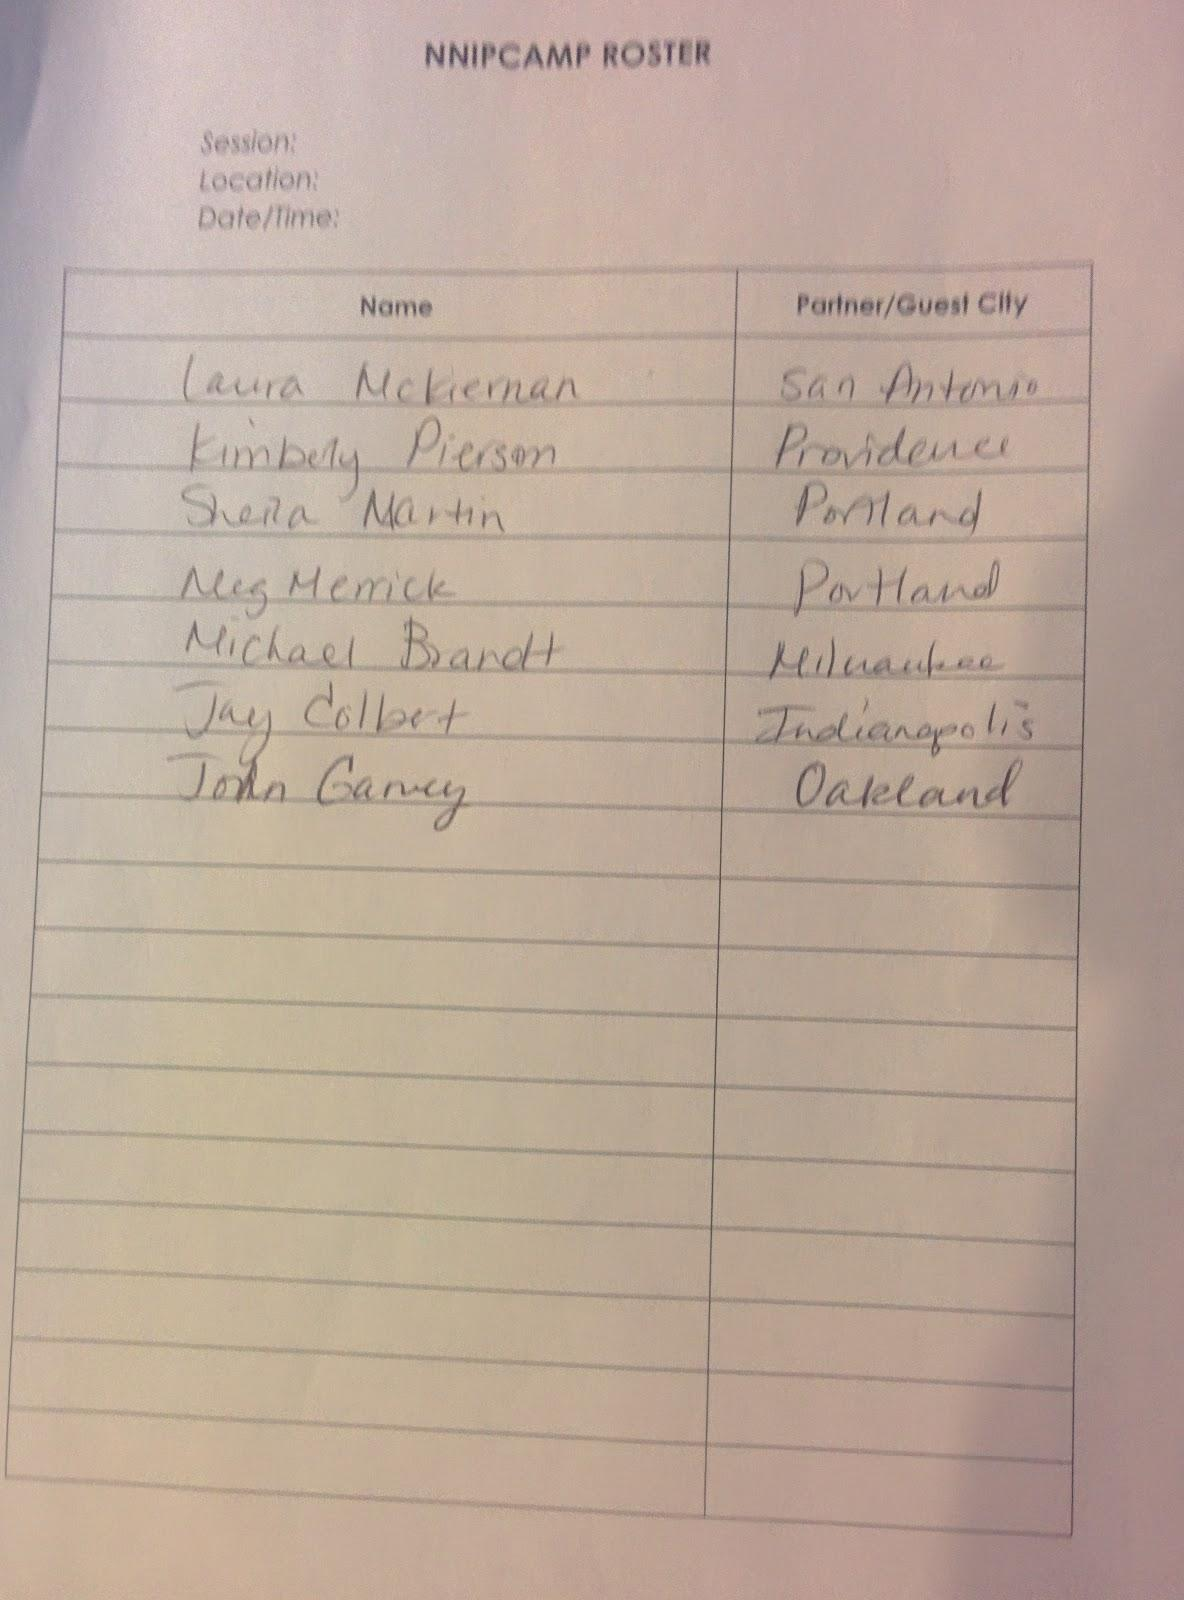 NNIPCAMP ROSTER
Session:
Location:
Date/Time:
Name Partner/Guest City
Laura McKiernan San Antonio
Kimbely Pierson Providence
Sheila Martin Portland
Meg Merrick Portland
Michael Brandt Milwaukee
Jay Colbert Indianapolis
John Garvey Oakland